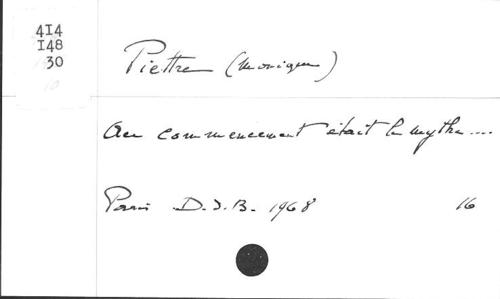 414
148
30
Piettre (Monique)
Au commencement était le mythe....
Paris D.D.B. 1968 16